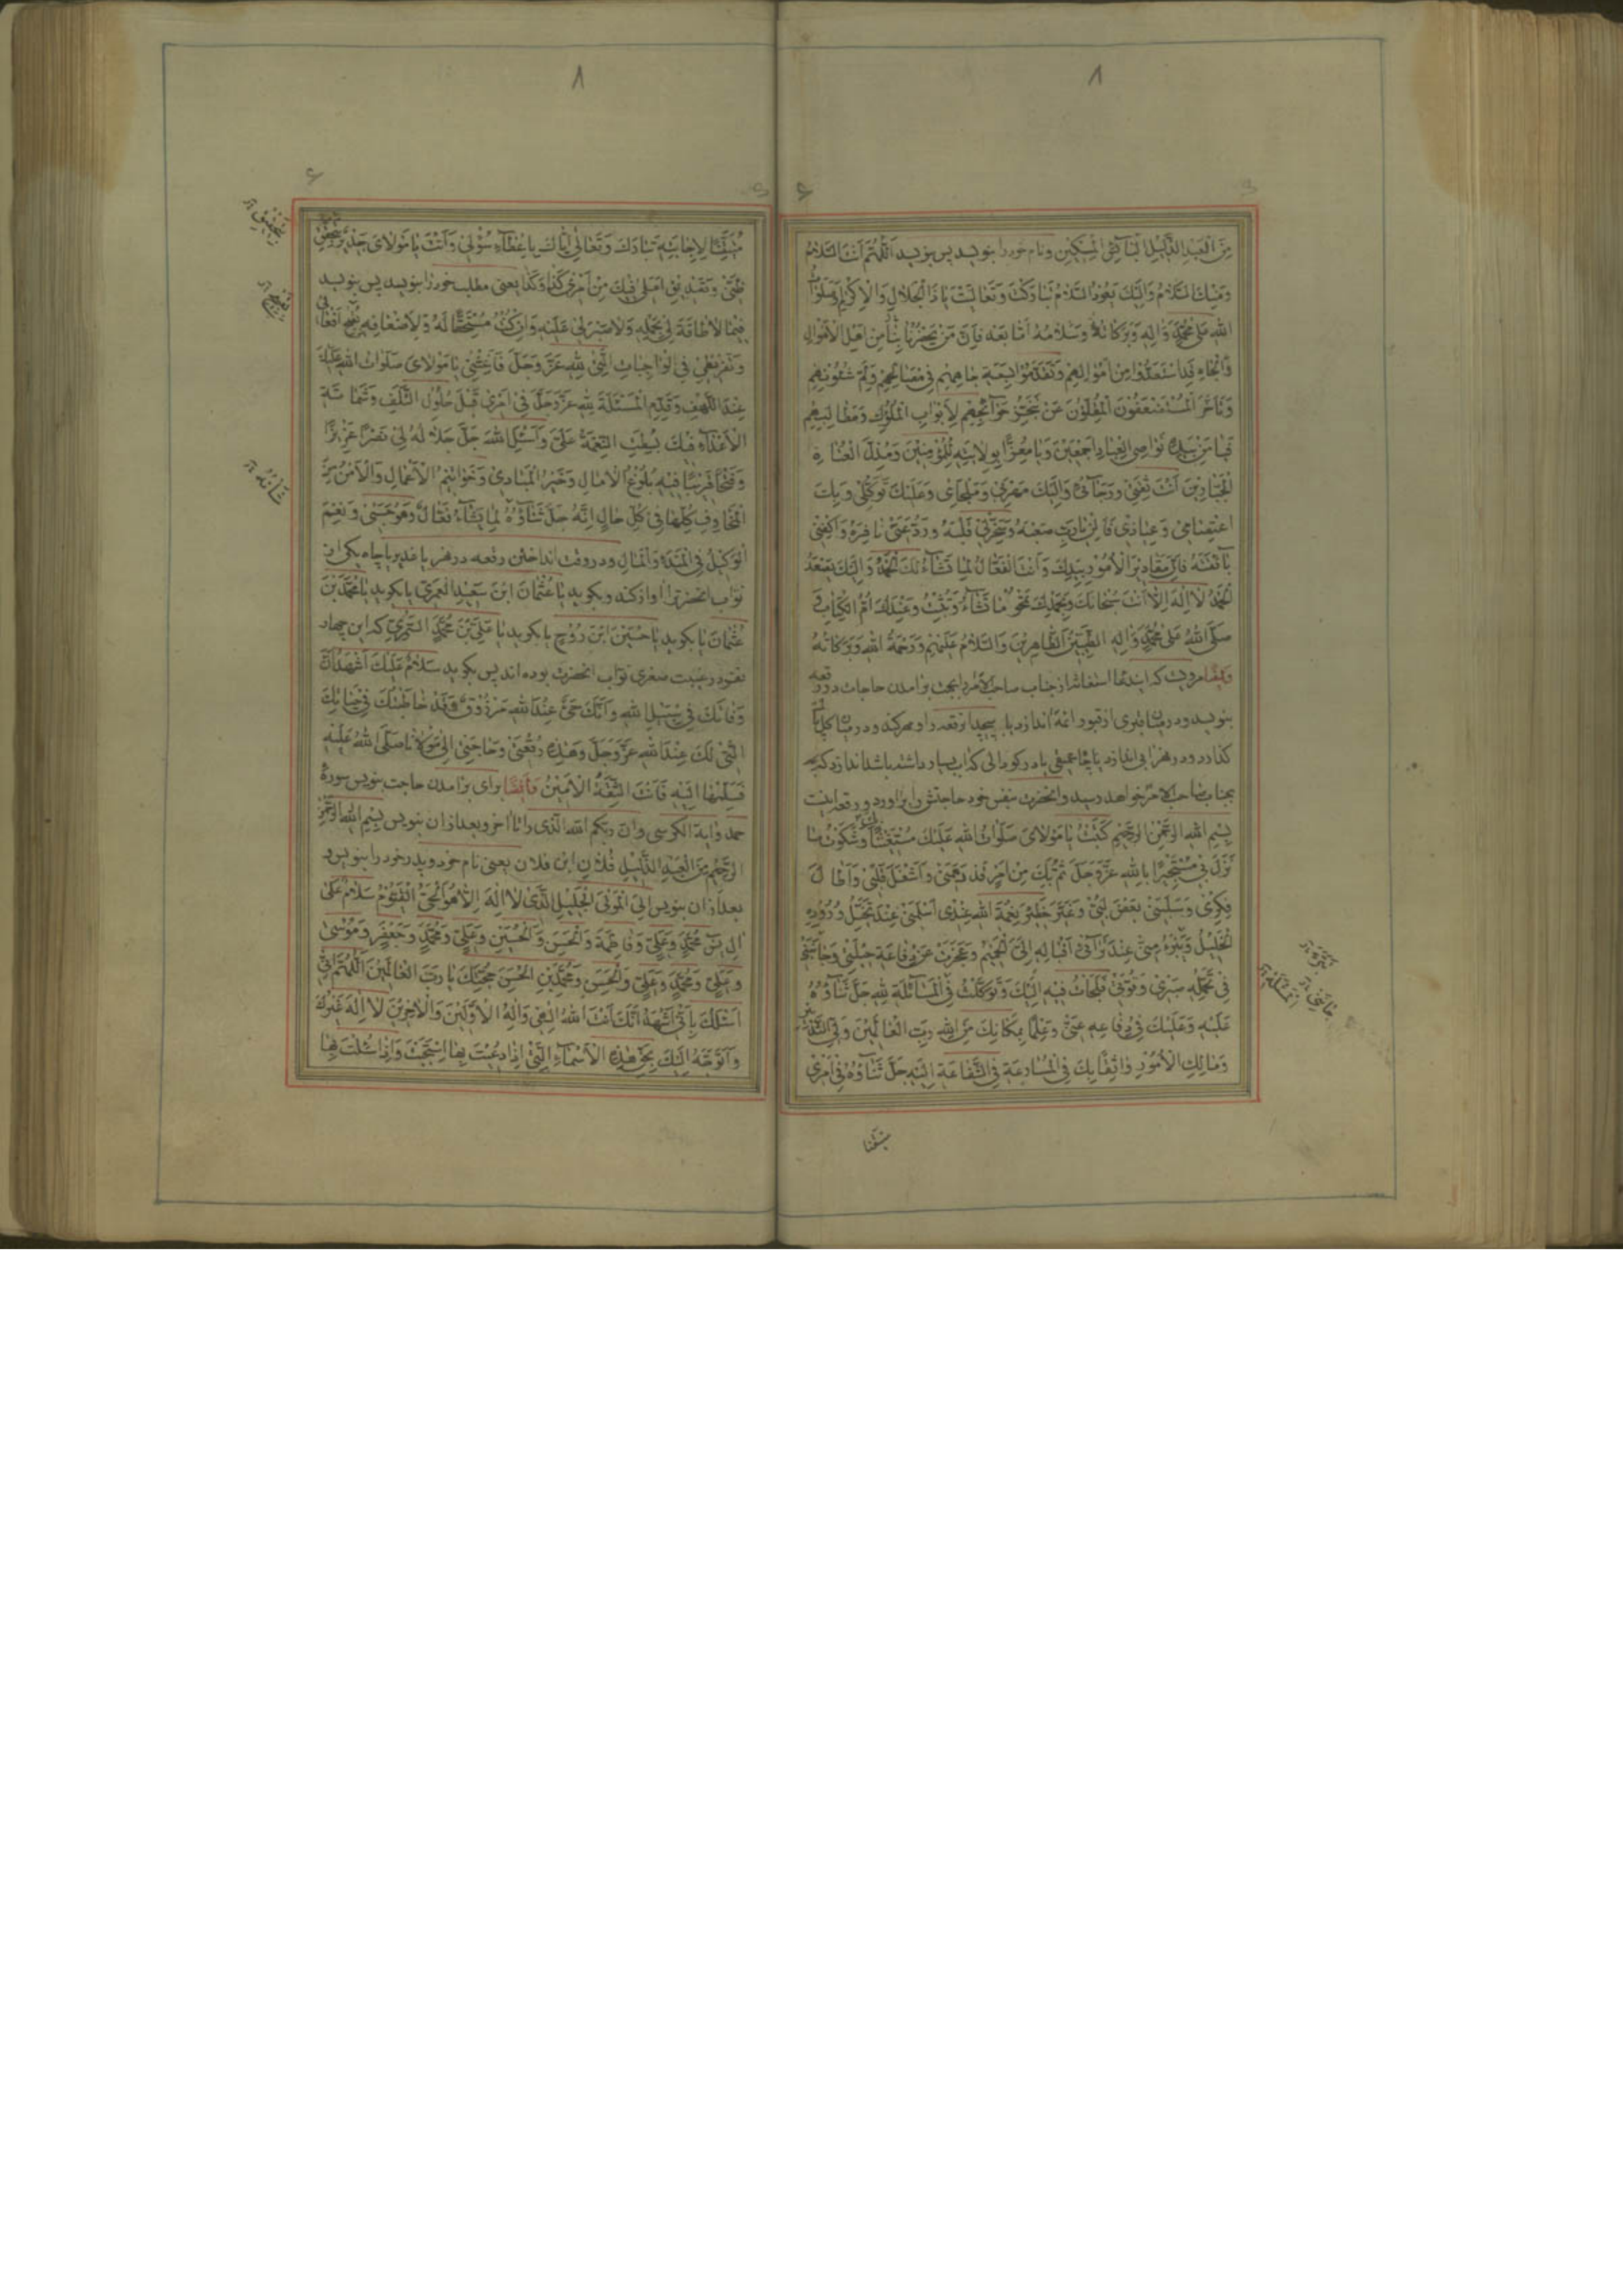 ٨
مِنَ الْعَبْدِ الذَّلِيلِ الْبَائِسِ الْمِسْكِينِ ونام خود را بنويسد پس بنويسد اَللّٰهُمَّ اَنْتَ السَّلامُ
وَمِنْكَ السَّلامُ وَاِلَيْكَ يَعُودُ السَّلامُ تَبارَكْتَ وَتَعالَيْتَ يا ذَا الْجَلالِ وَالْاِكْرامِ وَصَلَواتُ
اللهِ عَلى مُحَمَّدٍ وَآلِهِ وَبَرَكاتُهُ وَسَلامُهُ اَمّا بَعْدُ فَاِنَّ مَنْ يَحْضُرُنا مِنْ اَهْلِ الْاَمْوالِ
وَالْجاهِ قَدِ اسْتَعَدُّوا مِنْ اَمْوالِهِمْ وَتَقَدَّمُوا بِسَعَةِ جاهِهِمْ فِي مَصالِحِهِمْ وَلَمِّ شُعُونِهِمْ
وَتَاَخَّرَ الْمُسْتَضْعَفُونَ الْمُقِلُّونَ عَنْ تَنَجُّزِ حَوائِجِهِمْ لِاَبْوابِ الْمُلُوكِ وَمَطالِبِهِمْ
فَيا مَنْ بِيَدِهِ نَواصِي الْعِبادِ اَجْمَعِينَ وَيا مُعِزًّا بِوِلايَتِهِ لِلْمُؤْمِنِينَ وَمُذِلَّ الْعُتاةِ
الْجَبّارِينَ اَنْتَ ثِقَتِي وَرَجائِي وَاِلَيْكَ مَهْرَبِي وَمَلْجَائِي وَعَلَيْكَ تَوَكُّلِي وَبِكَ
اعْتِصامِي وَعِياذِي فَاَلِنْ يا رَبِّ صَعْبَهُ وَسَخِّرْ لِي قَلْبَهُ وَرُدَّ عَنِّي نافِرَهُ وَاكْفِنِي
بائِقَهُ فَاِنَّ مَقادِيرَ الْاُمُورِ بِيَدِكَ وَاَنْتَ الْفَعّالُ لِما تَشاءُ لَكَ الْحَمْدُ وَاِلَيْكَ يَصْعَدُ
الْحَمْدُ لا اِلٰهَ اِلّا اَنْتَ سُبْحانَكَ وَبِحَمْدِكَ تَمْحُو ما تَشاءُ وَتُثْبِتُ وَعِنْدَكَ اُمُّ الْكِتابِ وَ
صَلَّى اللهُ عَلى مُحَمَّدٍ وَآلِهِ الطَّيِّبِينَ الطّاهِرِينَ وَالسَّلامُ عَلَيْهِمْ وَرَحْمَةُ اللهِ وَبَرَكاتُهُ
وايضا مرويست كه استغاثه از جناب صاحب الامر را بجهت برآمدن حاجات در رقعه
بنويسد ودر ميان قبرى از قبور ائمه اندازد يا بپيچد رقعه را و مهر كند ودر ميان كل پاك
كذارد ودر نهر ابى اندازد يا چاه عميقى يا در كودالى كه اب بسيار داشته باشد اندازد كه
بجناب صاحب الامر خواهد رسيد وانحضرت بنفس خود حاجتش را براورد ورقعه اينست
بِسْمِ اللهِ الرَّحْمٰنِ الرَّحِيمِ كَتَبْتُ يا مَوْلايَ صَلَواتُ اللهِ عَلَيْكَ مُسْتَغِيثًا وَشَكَوْتُ ما
نَزَلَ بِي مُسْتَجِيرًا بِاللهِ عَزَّ وَجَلَّ ثُمَّ بِكَ مِنْ اَمْرٍ قَدْ دَهَمَنِي وَاَشْغَلَ قَلْبِي وَاَطالَ
فِكْرِي وَسَلَبَنِي بَعْضَ لُبِّي وَغَيَّرَ خَطِيرَ نِعْمَةِ اللهِ عِنْدِي اَسْلَمَنِي عِنْدَ تَخَيُّلِ وُرُودِهِ
الْخَلِيلُ وَتَبَرَّءَ مِنِّي عِنْدَ تَرائِي اِقْبالِهِ اِلَيَّ الْحَمِيمُ وَعَجَزَتْ عَنْ دِفاعِهِ حِيلَتِي وَخانَنِي
فِي تَحَمُّلِهِ صَبْرِي وَقُوَّتِي فَلَجَأْتُ فِيهِ اِلَيْكَ وَتَوَكَّلْتُ فِي الْمَسْأَلَةِ لِلّٰهِ جَلَّ ثَناؤُهُ
عَلَيْهِ وَعَلَيْكَ فِي دِفاعِهِ عَنِّي وَعِلْمًا بِمَكانِكَ مِنَ اللهِ رَبِّ الْعالَمِينَ وَلِيِّ التَّدْبِيرِ
وَمالِكِ الْاُمُورِ واثِقًا بِكَ فِي الْمُسارَعَةِ فِي الشَّفاعَةِ اِلَيْهِ جَلَّ ثَناؤُهُ فِي اَمْرِي
متيقنا
٨
مُتَيَقِّنًا لِاِجابَتِهِ تَبارَكَ وَتَعالى اِيّاكَ بِاِعْطاءِ سُؤْلِي وَاَنْتَ يا مَوْلايَ جَدِيرٌ بِتَحْقِيقِ
ظَنِّي وَتَصْدِيقِ اَمَلِي فِيكَ مِنْ اَمْرِ كَذا وَكَذا يعنى مطلب خود را بنويسد پس بنويسد
فِيما لا طاقَةَ لِي بِحَمْلِهِ وَلا صَبْرَ لِي عَلَيْهِ وَاِنْ كُنْتُ مُسْتَحِقًّا لَهُ وَلِاَضْعافِهِ بِقَبِيحِ اَفْعالِي
وَتَفْرِيطِي فِي الْواجِباتِ الَّتِي لِلّٰهِ عَزَّ وَجَلَّ فَاَغِثْنِي يا مَوْلايَ صَلَواتُ اللهِ عَلَيْكَ
عِنْدَ اللَّهْفِ وَقَدِّمِ الْمَسْئَلَةَ لِلّٰهِ عَزَّ وَجَلَّ فِي اَمْرِي قَبْلَ حُلُولِ التَّلَفِ وَشَماتَةِ
الْاَعْداءِ فَبِكَ بُسِطَتِ النِّعْمَةُ عَلَيَّ وَاَسْئَلُ اللهَ جَلَّ جَلالُهُ لِي نَصْرًا عَزِيزًا
وَفَتْحًا قَرِيبًا فِيهِ بُلُوغُ الْاٰمالِ وَخَيْرُ الْمَبادِي وَخَواتِيمُ الْاَعْمالِ وَالْاَمْنُ مِنَ
الْمَخاوِفِ كُلِّها فِي كُلِّ حالٍ اِنَّهُ جَلَّ ثَناؤُهُ لِما يَشاءُ فَعّالٌ وَهُوَ حَسْبِي وَنِعْمَ
الْوَكِيلُ فِي الْمَبْدَءِ وَالْمَآلِ ودر وقت انداختن رقعه در نهر يا غدير يا چاه يكى از
نواب انحضرترا اواز كند وبكويد يا عُثْمانَ ابْنَ سَعِيدٍ الْعَمْرِيَّ يا بكويد يا مُحَمَّدَ بْنَ
عُثْمانَ يا بكويد يا حُسَيْنَ ابْنَ رُوحٍ يا بكويد يا عَلِيَّ بْنَ مُحَمَّدٍ السَّمُرِيَّ كه اين چهار
نفر در غيبت صغرى نواب انحضرت بوده اند پس بكويد سَلامٌ عَلَيْكَ اَشْهَدُ اَنَّ
وَفاتَكَ فِي سَبِيلِ اللهِ وَاَنَّكَ حَيٌّ عِنْدَ اللهِ مَرْزُوقٌ وَقَدْ خاطَبْتُكَ فِي حَياتِكَ
الَّتِي لَكَ عِنْدَ اللهِ عَزَّ وَجَلَّ وَهٰذِهِ رُقْعَتِي وَحاجَتِي اِلى مَوْلانا صَلَّى اللهُ عَلَيْهِ
فَسَلِّمْها اِلَيْهِ فَاَنْتَ الثِّقَةُ الْاَمِينُ وايضا براى برامدن حاجت بنويس سورۀ
حمد واية الكرسى وان ربكم الله الذى را تا اخر وبعد ازان بنويس بِسْمِ اللهِ الرَّحْمٰنِ
الرَّحِيمِ مِنَ الْعَبْدِ الذَّلِيلِ فُلانِ ابن فلان يعنى نام خود وپدر خود را بنويس و
بعد ازان بنويس اِلَى الْمَوْلَى الْجَلِيلِ الَّذِي لا اِلٰهَ اِلّا هُوَ الْحَيُّ الْقَيُّومُ سَلامٌ عَلى
اٰلِ يٰسٓ مُحَمَّدٍ وَعَلِيٍّ وَفاطِمَةَ وَالْحَسَنِ وَالْحُسَيْنِ وَعَلِيٍّ وَمُحَمَّدٍ وَجَعْفَرٍ وَمُوسى
وَعَلِيٍّ وَمُحَمَّدٍ وَعَلِيٍّ وَالْحَسَنِ وَمُحَمَّدِ بْنِ الْحَسَنِ حُجَّتِكَ يا رَبَّ الْعالَمِينَ اَللّٰهُمَّ اِنِّي
اَسْئَلُكَ بِاَنِّي اَشْهَدُ اَنَّكَ اَنْتَ اللهُ اِلٰهِي وَاِلٰهُ الْاَوَّلِينَ وَالْاٰخِرِينَ لا اِلٰهَ غَيْرُكَ
وَاَتَوَجَّهُ اِلَيْكَ بِحَقِّ هٰذِهِ الْاَسْماءِ الَّتِي اِذا دُعِيتَ بِها اَجَبْتَ وَاِذا سُئِلْتَ بِها